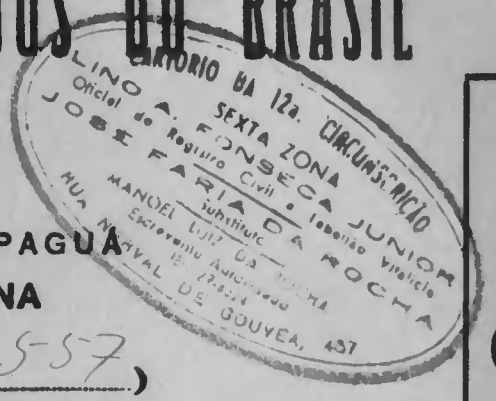 DO BRASIL
CARTORIO DA 12a. CIRCUNSCRIÇÃO
SEXTA ZONA
LINO A. FONSECA JUNIOR
Oficial do Registro Civil e Tabelião Vitalicio
JOSE FARIA DA ROCHA
Substituto
MANOEL LUIZ DA ROCHA
Escrevente Autorizado
RUA NERVAL DE GOUVEA, 457
PAGUÁ
NA
5-57
)